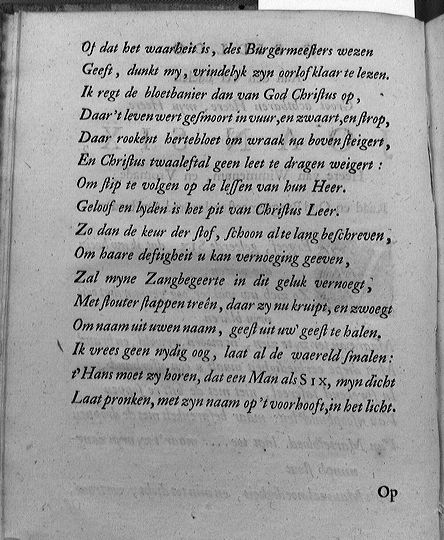 Of dat het waarheit is, des Burgermeeſters wezen
Geeſt, dunkt my, vrindelyk zyn oorlof klaar te lezen.
Ik regt de bloetbanier dan van God Chriſtus op,
Daar't leven wert geſmoort in vuur, en zwaart, en ſtrop,
Daar rookent hertebloet om wraak na boven ſteigert,
En Chriſtus twaaleftal geen leet te dragen weigert:
Om ſtip te volgen op de leſſen van hun Heer.
Geloof en lyden is het pit van Chriſtus Leer.
Zo dan de keur der ſtof, ſchoon al te lang beſchreven,
Om haare deftigheit u kan vernoeging geeven,
Zal myne Zangbegeerte in dit geluk vernoegt,
Met ſtouter ſtappen treên, daar zy nu kruipt, en zwoegt
Om naam uit uwen naam, geeſt uit uw' geeſt te halen.
Ik vrees geen nydig oog, laat al de waereld ſmalen:
t'Hans moet zy horen, dat een Man als SIX, myn dicht
Laat pronken, met zyn naam op 't voorhooft, in het licht.
Op